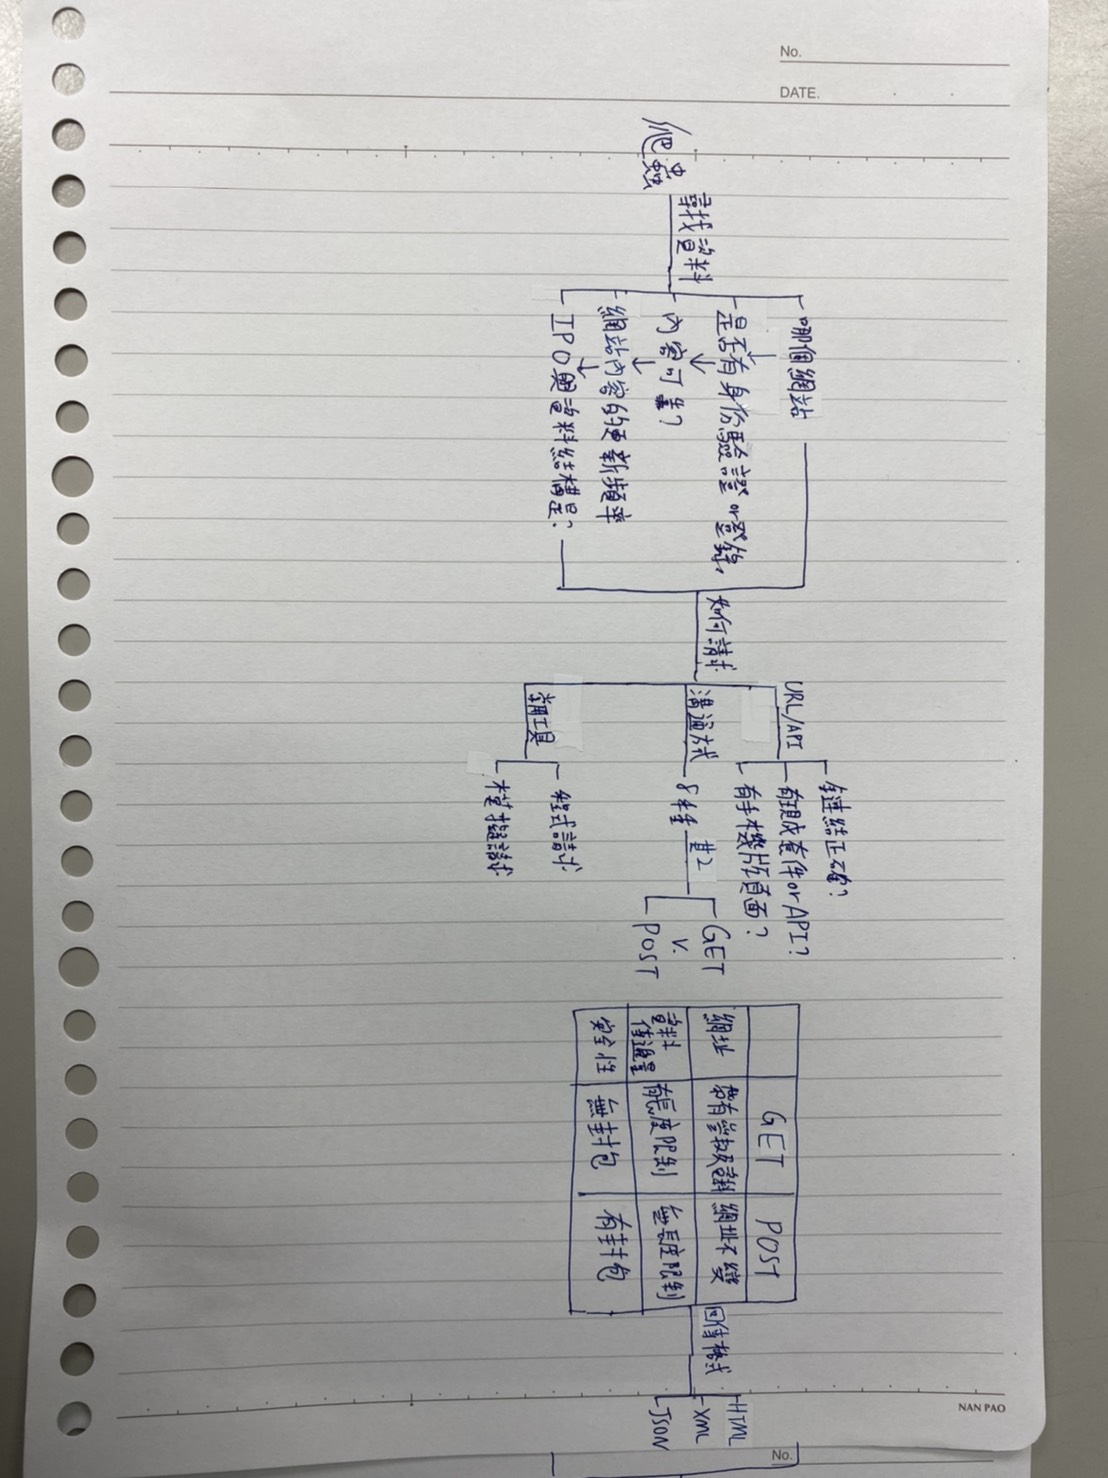 No.
DATE.
爬蟲
尋找資料
哪個網站
是否有身份驗證 or 登錄?
內容可靠?
網站內容的更新頻率
IPO與資料結構是?
如何請求
URL/API
鏈結正確?
有現成套件 or API?
有手機版頁面?
溝通方式
8種
其2
GET
V.
POST
常用工具
程式請求
模擬請求
GET
POST
網址
網址不變
資料
傳遞量
有長度限制
無長度限制
安全性
無封包
有封包
回傳格式
HTML
XML
JSON
NAN PAO
No.